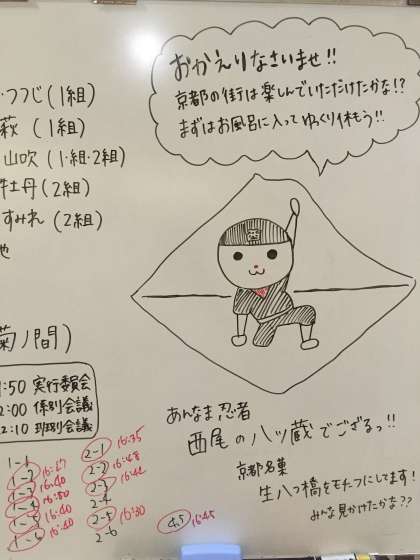 おかえりなさいませ!!
京都の街は楽しんでいただけたかな!?
まずはお風呂に入ってゆっくり休もう!!
・つつじ(1組)
萩(1組)
山吹(1・組・2組)
牡丹(2組)
すみれ(2組)
西
菊ノ間)
:50 実行委員会
2:00 係別会議
2:10 班別会議
あんなま忍者
西尾の八ツ蔵でござるっ!!
京都名菓
生八つ橋をモチーフにしてます!
みんな見かけたかな??
1-1
1-2
1-3 16:40
1-4 16:50
1-5 16:40
1-6 16:40
2-1 16:35
2-2 16:48
2-3
2-4
2-5 16:30
2-6
16:45